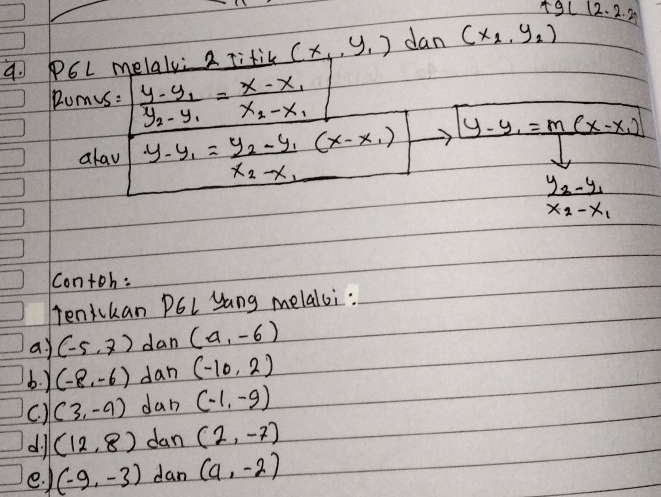 tgl 12.2.2
4. PGL melalui 2 titik (x₁, y₁) dan (x₂, y₂)
Rumus: (y-y₁)/(y₂-y₁) = (x-x₁)/(x₂-x₁)
atau y-y₁ = (y₂-y₁)/(x₂-x₁) (x-x₁) → y-y₁ = m(x-x₁)
↓
(y₂-y₁)/(x₂-x₁)
Contoh:
Tentukan PGL yang melalui:
a.) (-5,7) dan (4,-6)
b.) (-8,-6) dan (-10,2)
c.) (3,-4) dan (-1,-9)
d.) (12,8) dan (2,-7)
e.) (-9,-3) dan (4,-2)